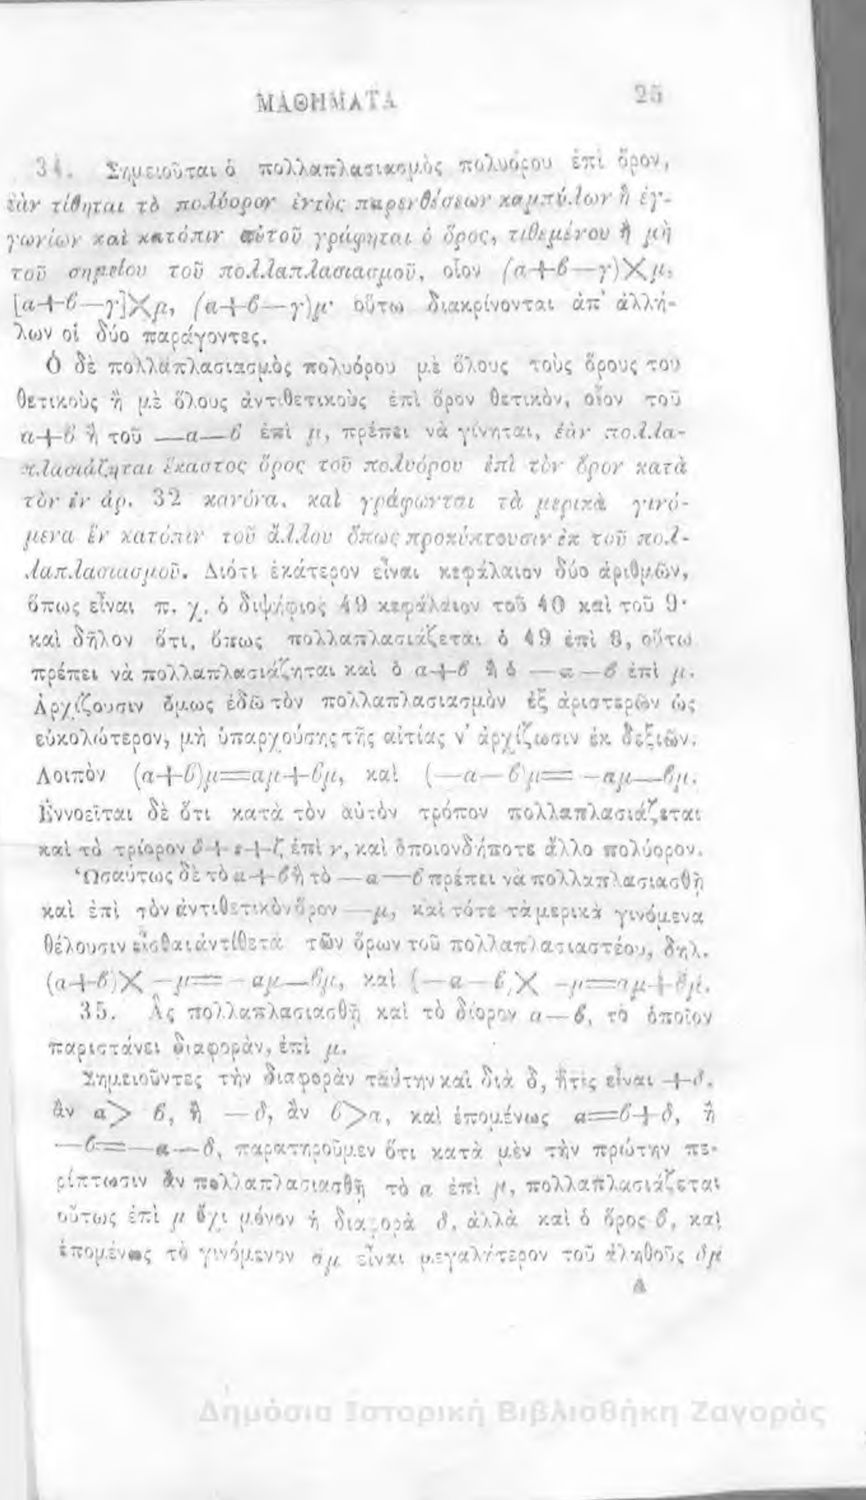 ΜΑΘΗΜΑΤΑ 25
34. Σημειοῦται ὁ πολλαπλασιασμὸς πολυόρου ἐπὶ ὅρον,
ἐὰν τίθηται τὸ πολύορον ἐντὸς παρενθέσεων καμπύλων ἢ ἐγ-
γωνίων καὶ κατόπιν αὐτοῦ γράφηται ὁ ὅρος, τιθεμένου ἢ μὴ
τοῦ σημείου τοῦ πολλαπλασιασμοῦ, οἷον (α+β—γ)×μ,
[α+β—γ]×μ, (α+β—γ)μ· οὕτω διακρίνονται ἀπ' ἀλλή-
λων οἱ δύο παράγοντες.
Ὁ δὲ πολλαπλασιασμὸς πολυόρου μὲ ὅλους τοὺς ὅρους του
θετικοὺς ἢ μὲ ὅλους ἀντιθετικοὺς ἐπὶ ὅρον θετικὸν, οἷον τοῦ
α+β ἢ τοῦ —α—β ἐπὶ μ, πρέπει νὰ γίνηται, ἐὰν πολλα-
πλασιάζηται ἕκαστος ὅρος τοῦ πολυόρου ἐπὶ τὸν ὅρον κατὰ
τὸν ἐν ἀρ. 32 κανόνα, καὶ γράφωνται τὰ μερικὰ γινό-
μενα ἓν κατόπιν τοῦ ἄλλου ὅπως προκύπτουσιν ἐκ τοῦ πολ-
λαπλασιασμοῦ. Διότι ἑκάτερον εἶναι κεφάλαιον δύο ἀριθμῶν,
ὅπως εἶναι π. χ. ὁ διψήφιος 49 κεφάλαιον τοῦ 40 καὶ τοῦ 9·
καὶ δῆλον ὅτι, ὅπως πολλαπλασιάζεται ὁ 49 ἐπὶ 8, οὕτω
πρέπει νὰ πολλαπλασιάζηται καὶ ὁ α+β ἢ ὁ —α—β ἐπὶ μ.
Ἀρχίζουσιν ὅμως ἐδῶ τὸν πολλαπλασιασμὸν ἐξ ἀριστερῶν ὡς
εὐκολώτερον, μὴ ὑπαρχούσης τῆς αἰτίας ν' ἀρχίζωσιν ἐκ δεξιῶν.
Λοιπὸν (α+β)μ=αμ+βμ, καὶ (—α—β)μ= —αμ—βμ.
Ἐννοεῖται δὲ ὅτι κατὰ τὸν αὐτὸν τρόπον πολλαπλασιάζεται
καὶ τὸ τρίορον δ+ε+ζ ἐπὶ ν, καὶ ὁποιονδήποτε ἄλλο πολύορον.
Ὡσαύτως δὲ τὸ α+β ἢ τὸ —α—β πρέπει νὰ πολλαπλασιασθῇ
καὶ ἐπὶ τὸν ἀντιθετικὸν ὅρον —μ, καὶ τότε τὰ μερικὰ γινόμενα
θέλουσιν εἶσθαι ἀντίθετα τῶν ὅρων τοῦ πολλαπλασιαστέου, δηλ.
(α+β)× —μ= —αμ—βμ, καὶ (—α—β)× —μ=αμ+βμ.
35. Ἂς πολλαπλασιασθῇ καὶ τὸ δίορον α—β, τὸ ὁποῖον
παριστάνει διαφορὰν, ἐπὶ μ.
Σημειοῦντες τὴν διαφορὰν ταύτην καὶ διὰ δ, ἥτις εἶναι +δ,
ἂν α> β, ἢ —δ, ἂν β>α, καὶ ἑπομένως α=β+δ, ἢ
—β=—α—δ, παρατηροῦμεν ὅτι κατὰ μὲν τὴν πρώτην πε-
ρίπτωσιν ἂν πολλαπλασιασθῇ τὸ α ἐπὶ μ, πολλαπλασιάζεται
οὕτως ἐπὶ μ ὄχι μόνον ἡ διαφορὰ δ, ἀλλὰ καὶ ὁ ὅρος β, καὶ
ἑπομένως τὸ γινόμενον αμ εἶναι μεγαλύτερον τοῦ ἀληθοῦς δμ
Δημόσια Ιστορική Βιβλιοθήκη Ζαγοράς